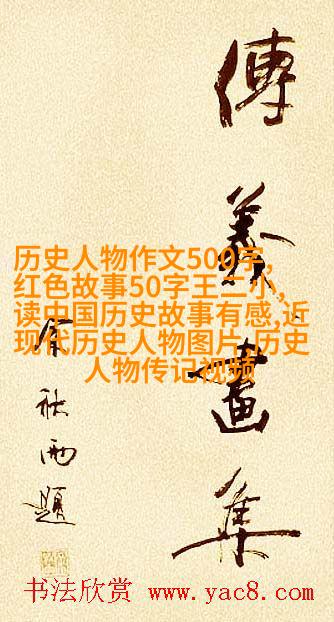 畫集
余秋雨題
历史人物作文500字,
红色故事50字王二小,
读中国历史故事有感,近
现代历史人物图片,历史
人物传记视频
书法欣赏 www.yac8.com